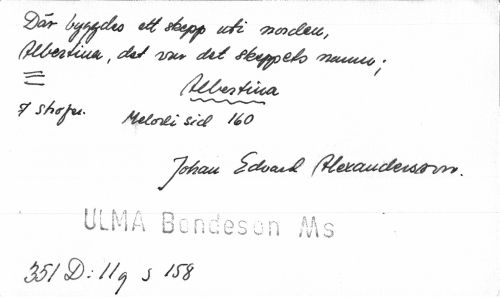 Där byggdes ett skepp uti norden,
Albertina, det var det skeppets namn;
Albertina
7 strofer. Melodi sid 160
Johan Edvard Alexandersson.
ULMA Bondeson Ms
351 D: 11 q s 158